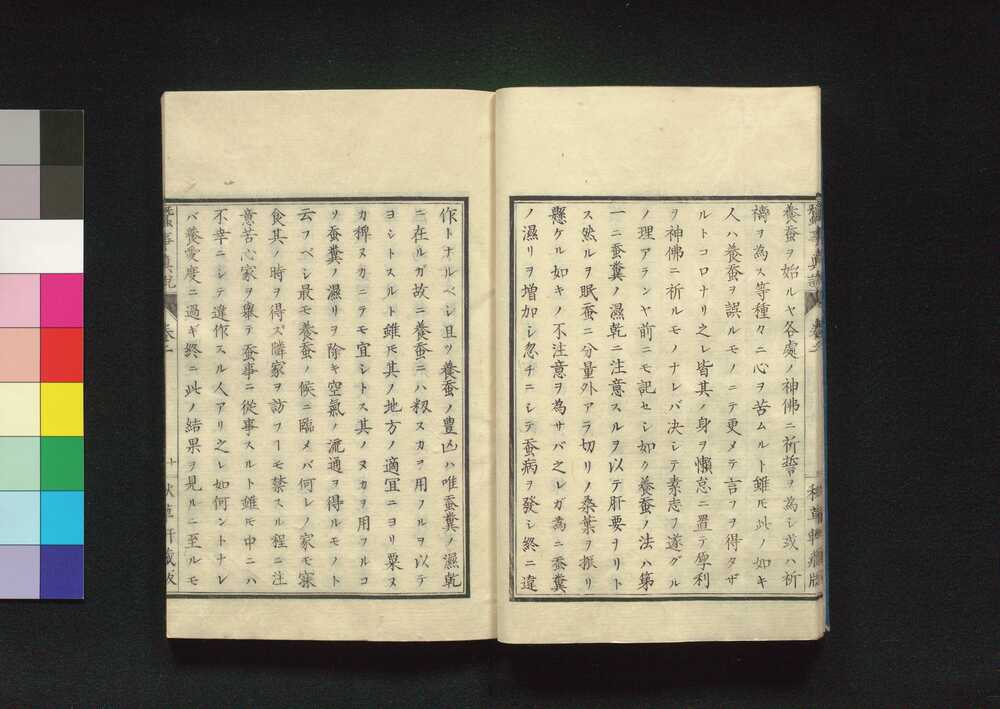 養蚕ヲ始ルヤ各處ノ神佛ニ祈誓ヲ為シ或ハ祈
禱ヲ為ス等種々ニ心ヲ苦ムルト雖モ此ノ如キ
人ハ養蚕ヲ誤ルモノニテ更メテ言フヲ得タザ
ルトコロナリ之レ皆其ノ身ヲ懶惰ニ置テ孕利
ヲ神佛ニ祈ルモノナレバ决シテ素志ヲ遂グル
ノ理アランヤ前ニモ記セシ如ク養蚕ノ法ハ第
一ニ蚕糞ノ濕乾ニ注意スルヲ以テ肝要ヲリト
ス然ルヲ眠蚕ニ分量外アラ切リノ桑葉ヲ振リ
懸ケル如キノ不注意ヲ為サバ之レガ為ニ蚕糞
ノ濕リヲ増加シ忽チニシテ蚕病ヲ發シ終ニ違
作トナルベシ且ツ養蚕ノ豊凶ハ唯蚕糞ノ濕乾
ニ在ルガ故ニ養蚕ニハ籾スカヲ用フルヲ以テ
ヨシトスルト雖モ其ノ地方ノ適冝ニヨリ粟ヌ
カ稗ヌカニテモ宜シトス其ノヌカヲ用フルコ
ソ蚕糞ノ濕リヲ除キ空氣ノ流通ヲ得ルモノト
云フベシ最モ養蚕ノ候ニ臨メバ何レノ家モ寐
食其ノ時ヲ得ズ隣家ヲ訪フヿモ禁スル程ニ注
意苦心家ヲ擧テ蚕事ニ從事スルト雖モ中ニハ
不幸ニシテ違作スル人アリ之レ如何ントナレ
バ養愛度ニ過ギ終ニ此ノ結果ヲ見ルニ至ルモ
蠶事眞説
卷之